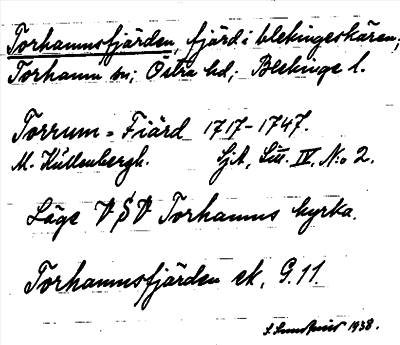 Torhamnsfjärden, fjärd i blekingeskären;
Torhamn sn; Östra hd; Blekinge l.
Torrum = Fiärd 1717-1747.
M. Kullenbergh. SjA, Litt. IV, N:o 2.
Läge VSV Torhamns kyrka.
Torhamnsfjärden ek. G.11.
1938.